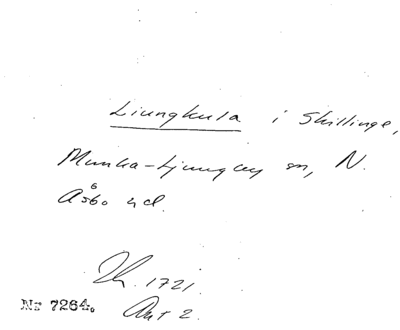 Liungkula i Skillinge,
Munka-Ljungby sn, N.
Åsbo hd.
1721.
Nr 7264. Akt 2.